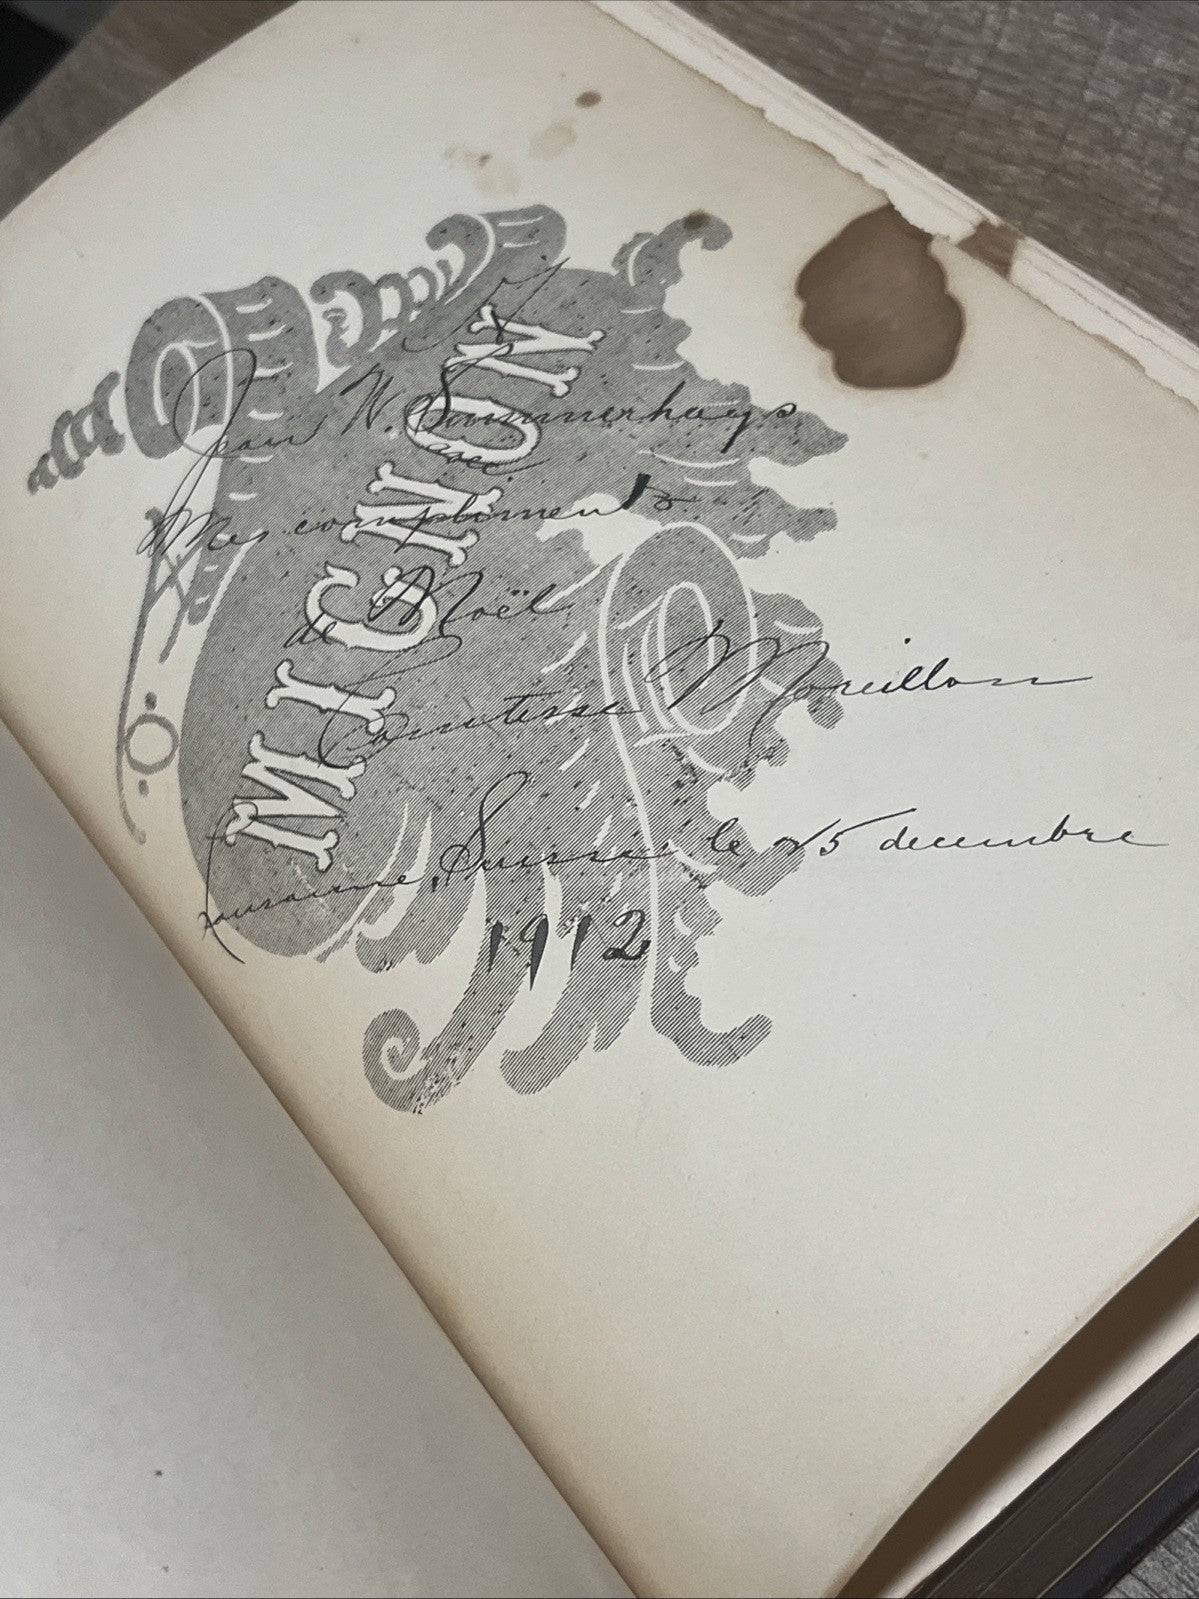 MIGNON
à
Jean W. Summerhays
avec
Mes compliments
de Noël
Comtesse Moreillon
Lausanne, Suisse le 25 decembre
1912